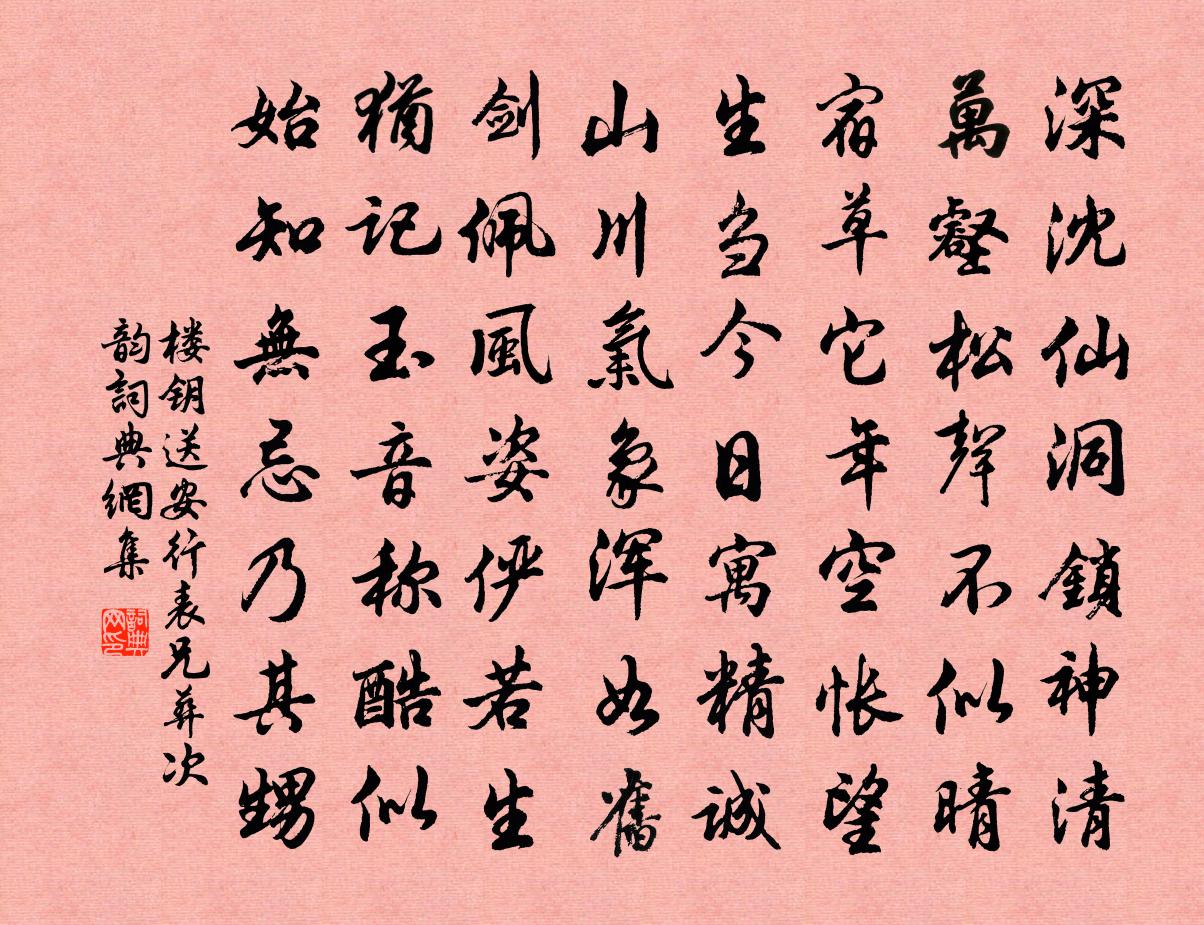 深沈仙洞鎖神清
萬壑松聲不似晴
宿草它年空怅望
生刍今日寓精誠
山川氣象浑如舊
剑佩風姿俨若生
猶記玉音称酷似
始知無忌乃其甥
楼钥送安行表兄葬次
韵詞典網集
詞典网印